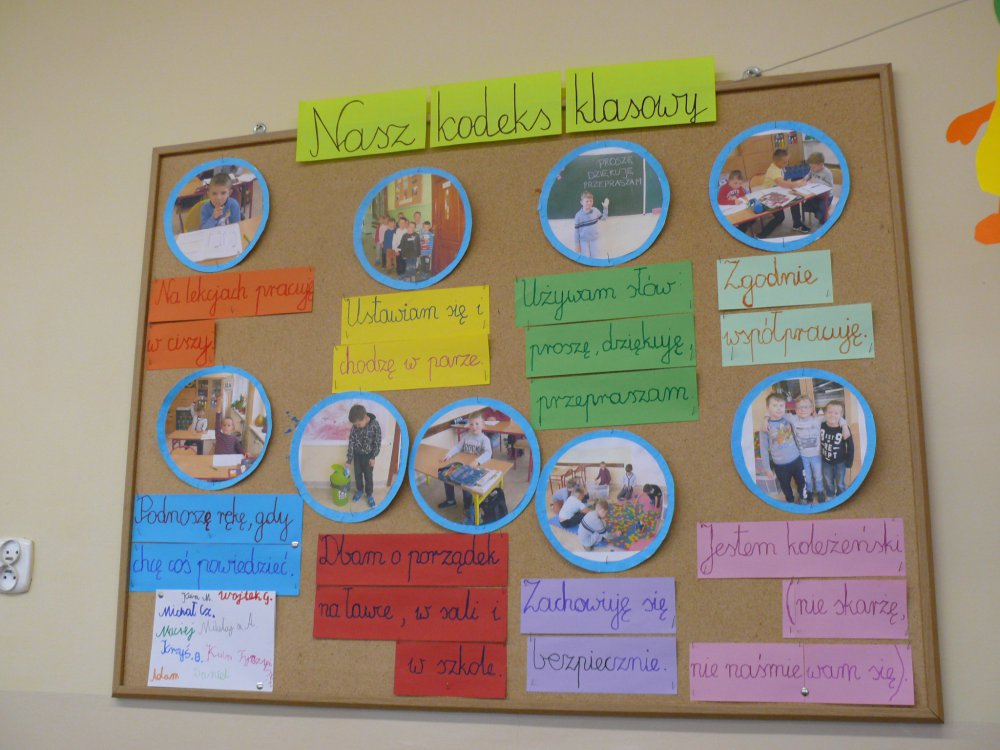 Nasz kodeks klasowy
Na lekcjach pracuję
w ciszy.
Ustawiam się i
chodzę w parze.
PROSZĘ
DZIĘKUJĘ
PRZEPRASZAM
Używam słów
proszę, dziękuję,
przepraszam.
Zgodnie
współpracuję.
Podnoszę rękę, gdy
chcę coś powiedzieć.
Dbam o porządek
na ławce, w sali i
w szkole.
Zachowuję się
bezpiecznie.
Jestem koleżeński
(nie skarżę,
nie naśmiewam się).
M. Wojtek G.
Michał Cz.
Maciej Mikołaj A.
Krzyś. B. Kuba
Adam Daniel